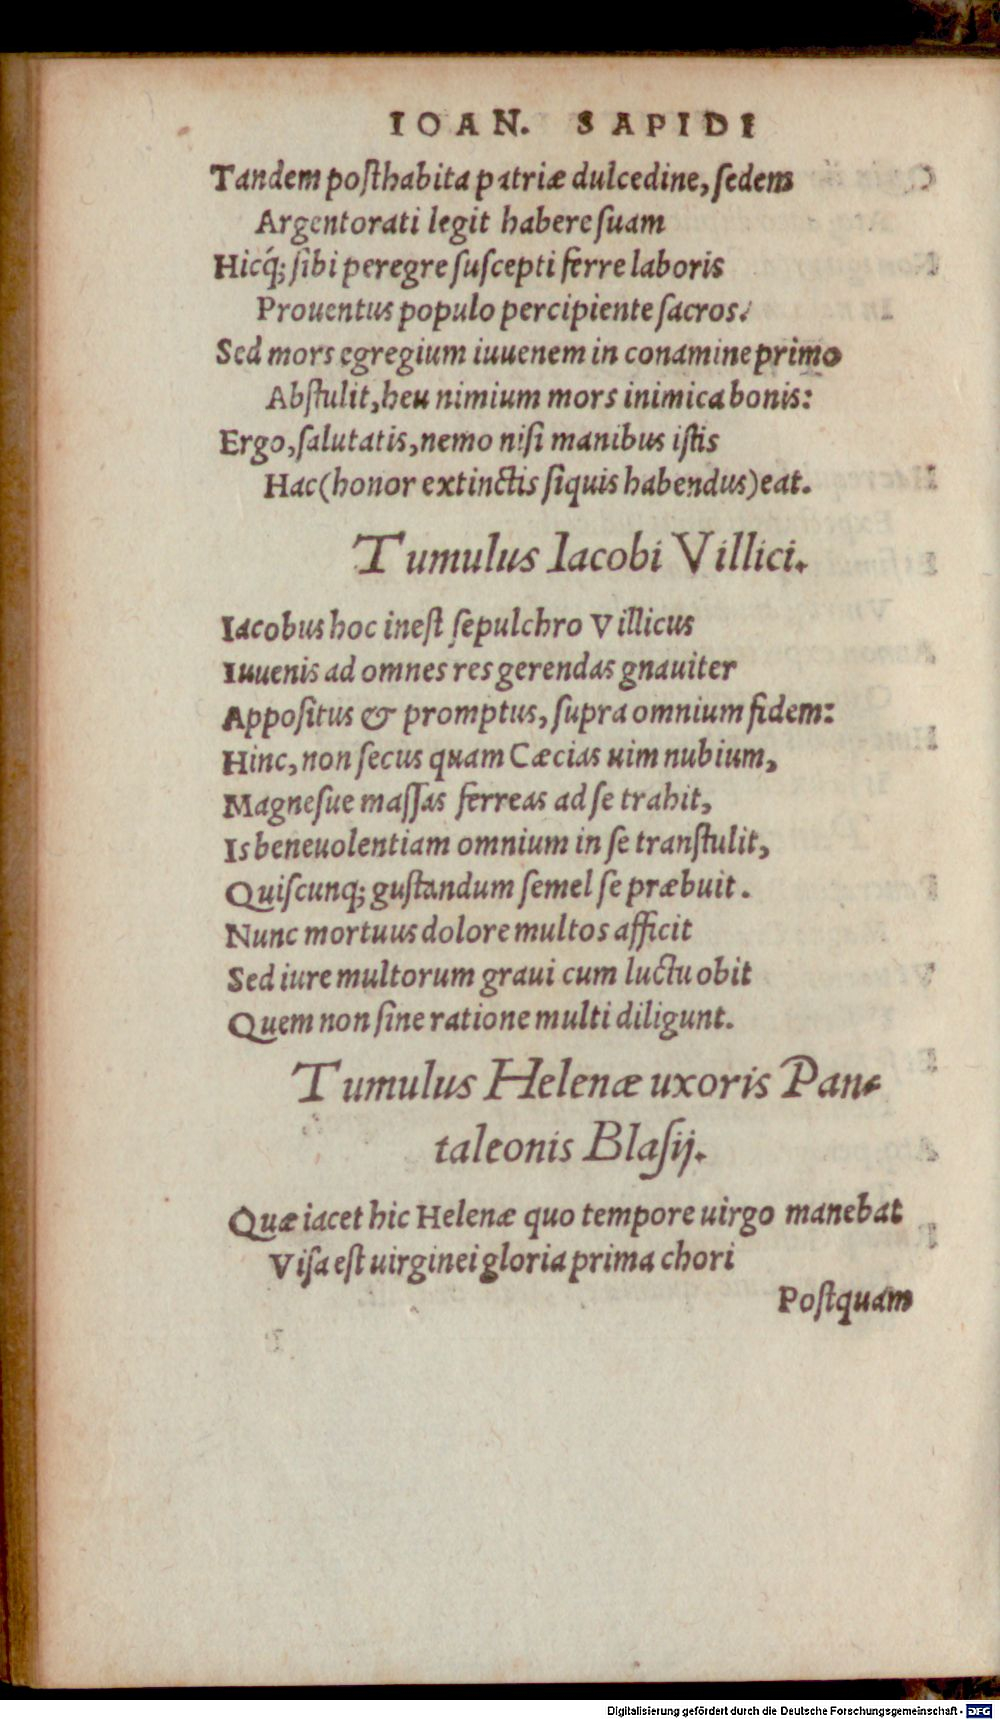 IOAN. SAPIDI
Tandem posthabita patriæ dulcedine, sedem
Argentorati legit habere suam
Hicq́; sibi peregre suscepti ferre laboris
Prouentus populo percipiente sacros.
Sed mors egregium iuuenem in conamine primo
Abstulit, heu nimium mors inimica bonis:
Ergo, salutatis, nemo nisi manibus istis
Hac (honor extinctis siquis habendus) eat.
Tumulus Iacobi Villici.
Iacobus hoc inest sepulchro Villicus
Iuuenis ad omnes res gerendas gnauiter
Appositus & promptus, supra omnium fidem:
Hinc, non secus quam Cæcias uim nubium,
Magnesue massas ferreas ad se trahit,
Is beneuolentiam omnium in se transtulit,
Quiscunq; gustandum semel se præbuit.
Nunc mortuus dolore multos afficit
Sed iure multorum graui cum luctu obit
Quem non sine ratione multi diligunt.
Tumulus Helenæ uxoris Pan-
taleonis Blasij.
Quæ iacet hic Helenæ quo tempore uirgo manebat
Visa est uirginei gloria prima chori
Postquam
Digitalisierung gefördert durch die Deutsche Forschungsgemeinschaft - DFG